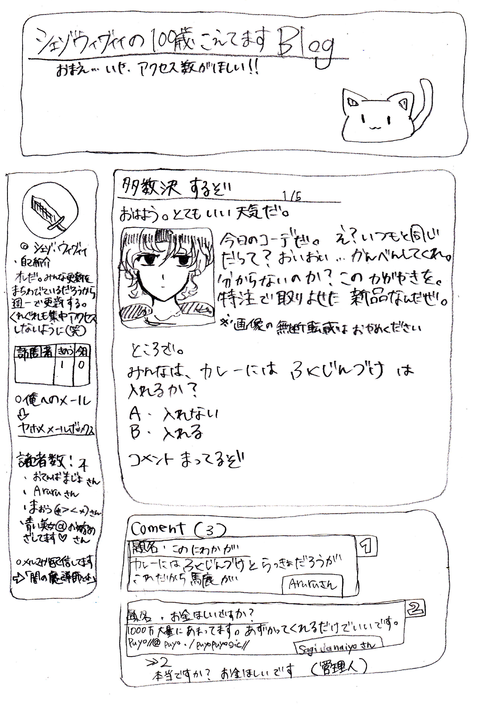 シェゾウィグィィの100歳こえてますBlog
おまえ…いや、アクセス数がほしい!!
◎シェゾ・ウィグィィ
・自己紹介
オレだ。みんな更新を
まちわびているだろうから
週一で更新する。
くれぐれも集中アクセス
しないように(笑)
訪問者 きのう 今日
1 0
○俺へのメール
ヤホメメールボックス
読者数!4
・おてんばまじょさん
・Aruruさん
・まおう(@><@)さん
・青い美女@お嫁めざしてます♡さん
○メルマガ配信してます
⇨「闇の魔導師
多数決するぞ
1/5
おはよう。とてもいい天気だ。
今日のコーデだ。え?いつもと同じ
だって?おいおい…かんべんしてくれ。
分からないのか?このかがやきを。
特注で取りよせた新品なんだぜ。
※画像の無断転載はおやめください
ところで。
みんなは、カレーにはふくじんづけは
入れるか?
A・入れない
B・入れる
コメントまってるぞ
Coment(3)
1
題名・このにわかが
カレーにはふくじんづけとらっきょだろうが
これだから馬鹿が
Aruruさん
2
題名・お金ほしいですか?
1000万大量にあまってます。あずかってくれるだけでいいです。
Sagijanaiyoさん
≫2
本当ですか?お金ほしいです(管理人)